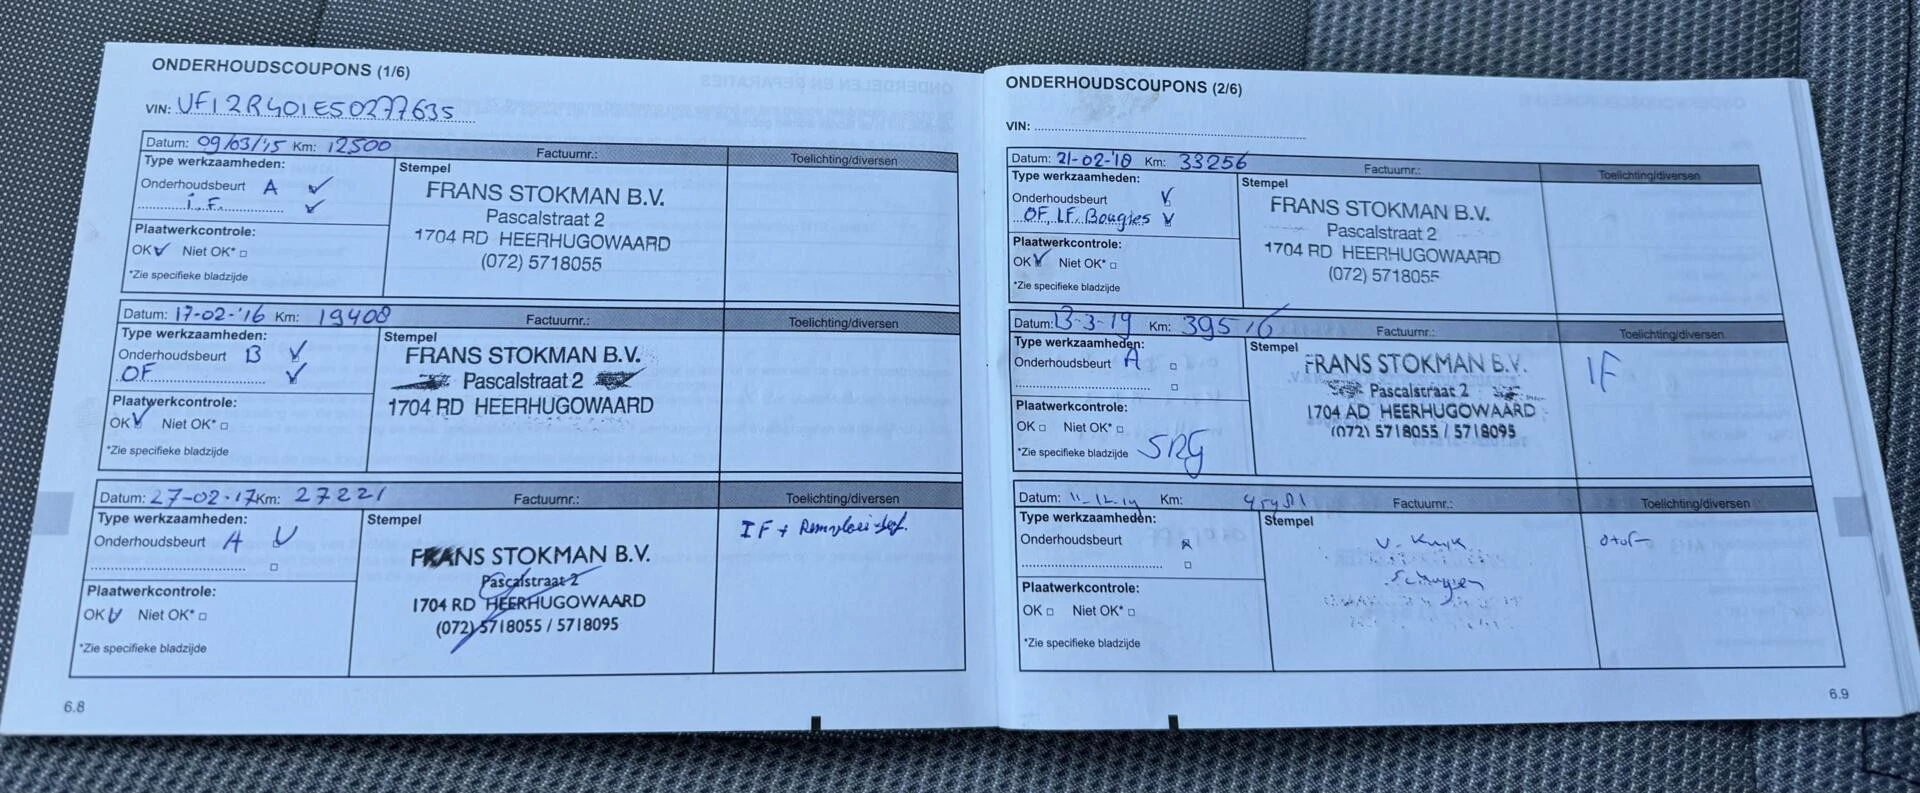 ONDERHOUDSCOUPONS (1/6)
VIN: VF12R401E50277635
Datum: 09/03/'15 Km: 12500 Factuurnr.: Toelichting/diversen
Type werkzaamheden:
Onderhoudsbeurt A
I.F.
Plaatwerkcontrole:
OK Niet OK*
*Zie specifieke bladzijde
Stempel
FRANS STOKMAN B.V.
Pascalstraat 2
1704 RD HEERHUGOWAARD
(072) 5718055
Datum: 17-02-'16 Km: 19408 Factuurnr.: Toelichting/diversen
Type werkzaamheden:
Onderhoudsbeurt B
OF
Plaatwerkcontrole:
OK Niet OK*
*Zie specifieke bladzijde
Stempel
FRANS STOKMAN B.V.
Pascalstraat 2
1704 RD HEERHUGOWAARD
Datum: 27-02-17 Km: 27221 Factuurnr.: Toelichting/diversen
Type werkzaamheden:
Onderhoudsbeurt A
Plaatwerkcontrole:
OK Niet OK*
*Zie specifieke bladzijde
Stempel
FRANS STOKMAN B.V.
Pascalstraat 2
1704 RD HEERHUGOWAARD
(072) 5718055 / 5718095
IF +
6.8
ONDERHOUDSCOUPONS (2/6)
VIN:
Datum: 21-02-'18 Km: 33256 Factuurnr.: Toelichting/diversen
Type werkzaamheden:
Onderhoudsbeurt
OF, I.F. Bougies
Plaatwerkcontrole:
OK Niet OK*
*Zie specifieke bladzijde
Stempel
FRANS STOKMAN B.V.
Pascalstraat 2
1704 RD HEERHUGOWAARD
(072) 5718055
Datum: 13-3-19 Km: 39516 Factuurnr.: Toelichting/diversen
Type werkzaamheden:
Onderhoudsbeurt A
Plaatwerkcontrole:
OK Niet OK*
*Zie specifieke bladzijde
Stempel
FRANS STOKMAN B.V.
Pascalstraat 2
1704 AD HEERHUGOWAARD
(072) 5718055 / 5718095
IF
Datum: 11-12-19 Km: Factuurnr.: Toelichting/diversen
Type werkzaamheden:
Onderhoudsbeurt
Plaatwerkcontrole:
OK Niet OK*
*Zie specifieke bladzijde
Stempel
v. Kuyk
6.9